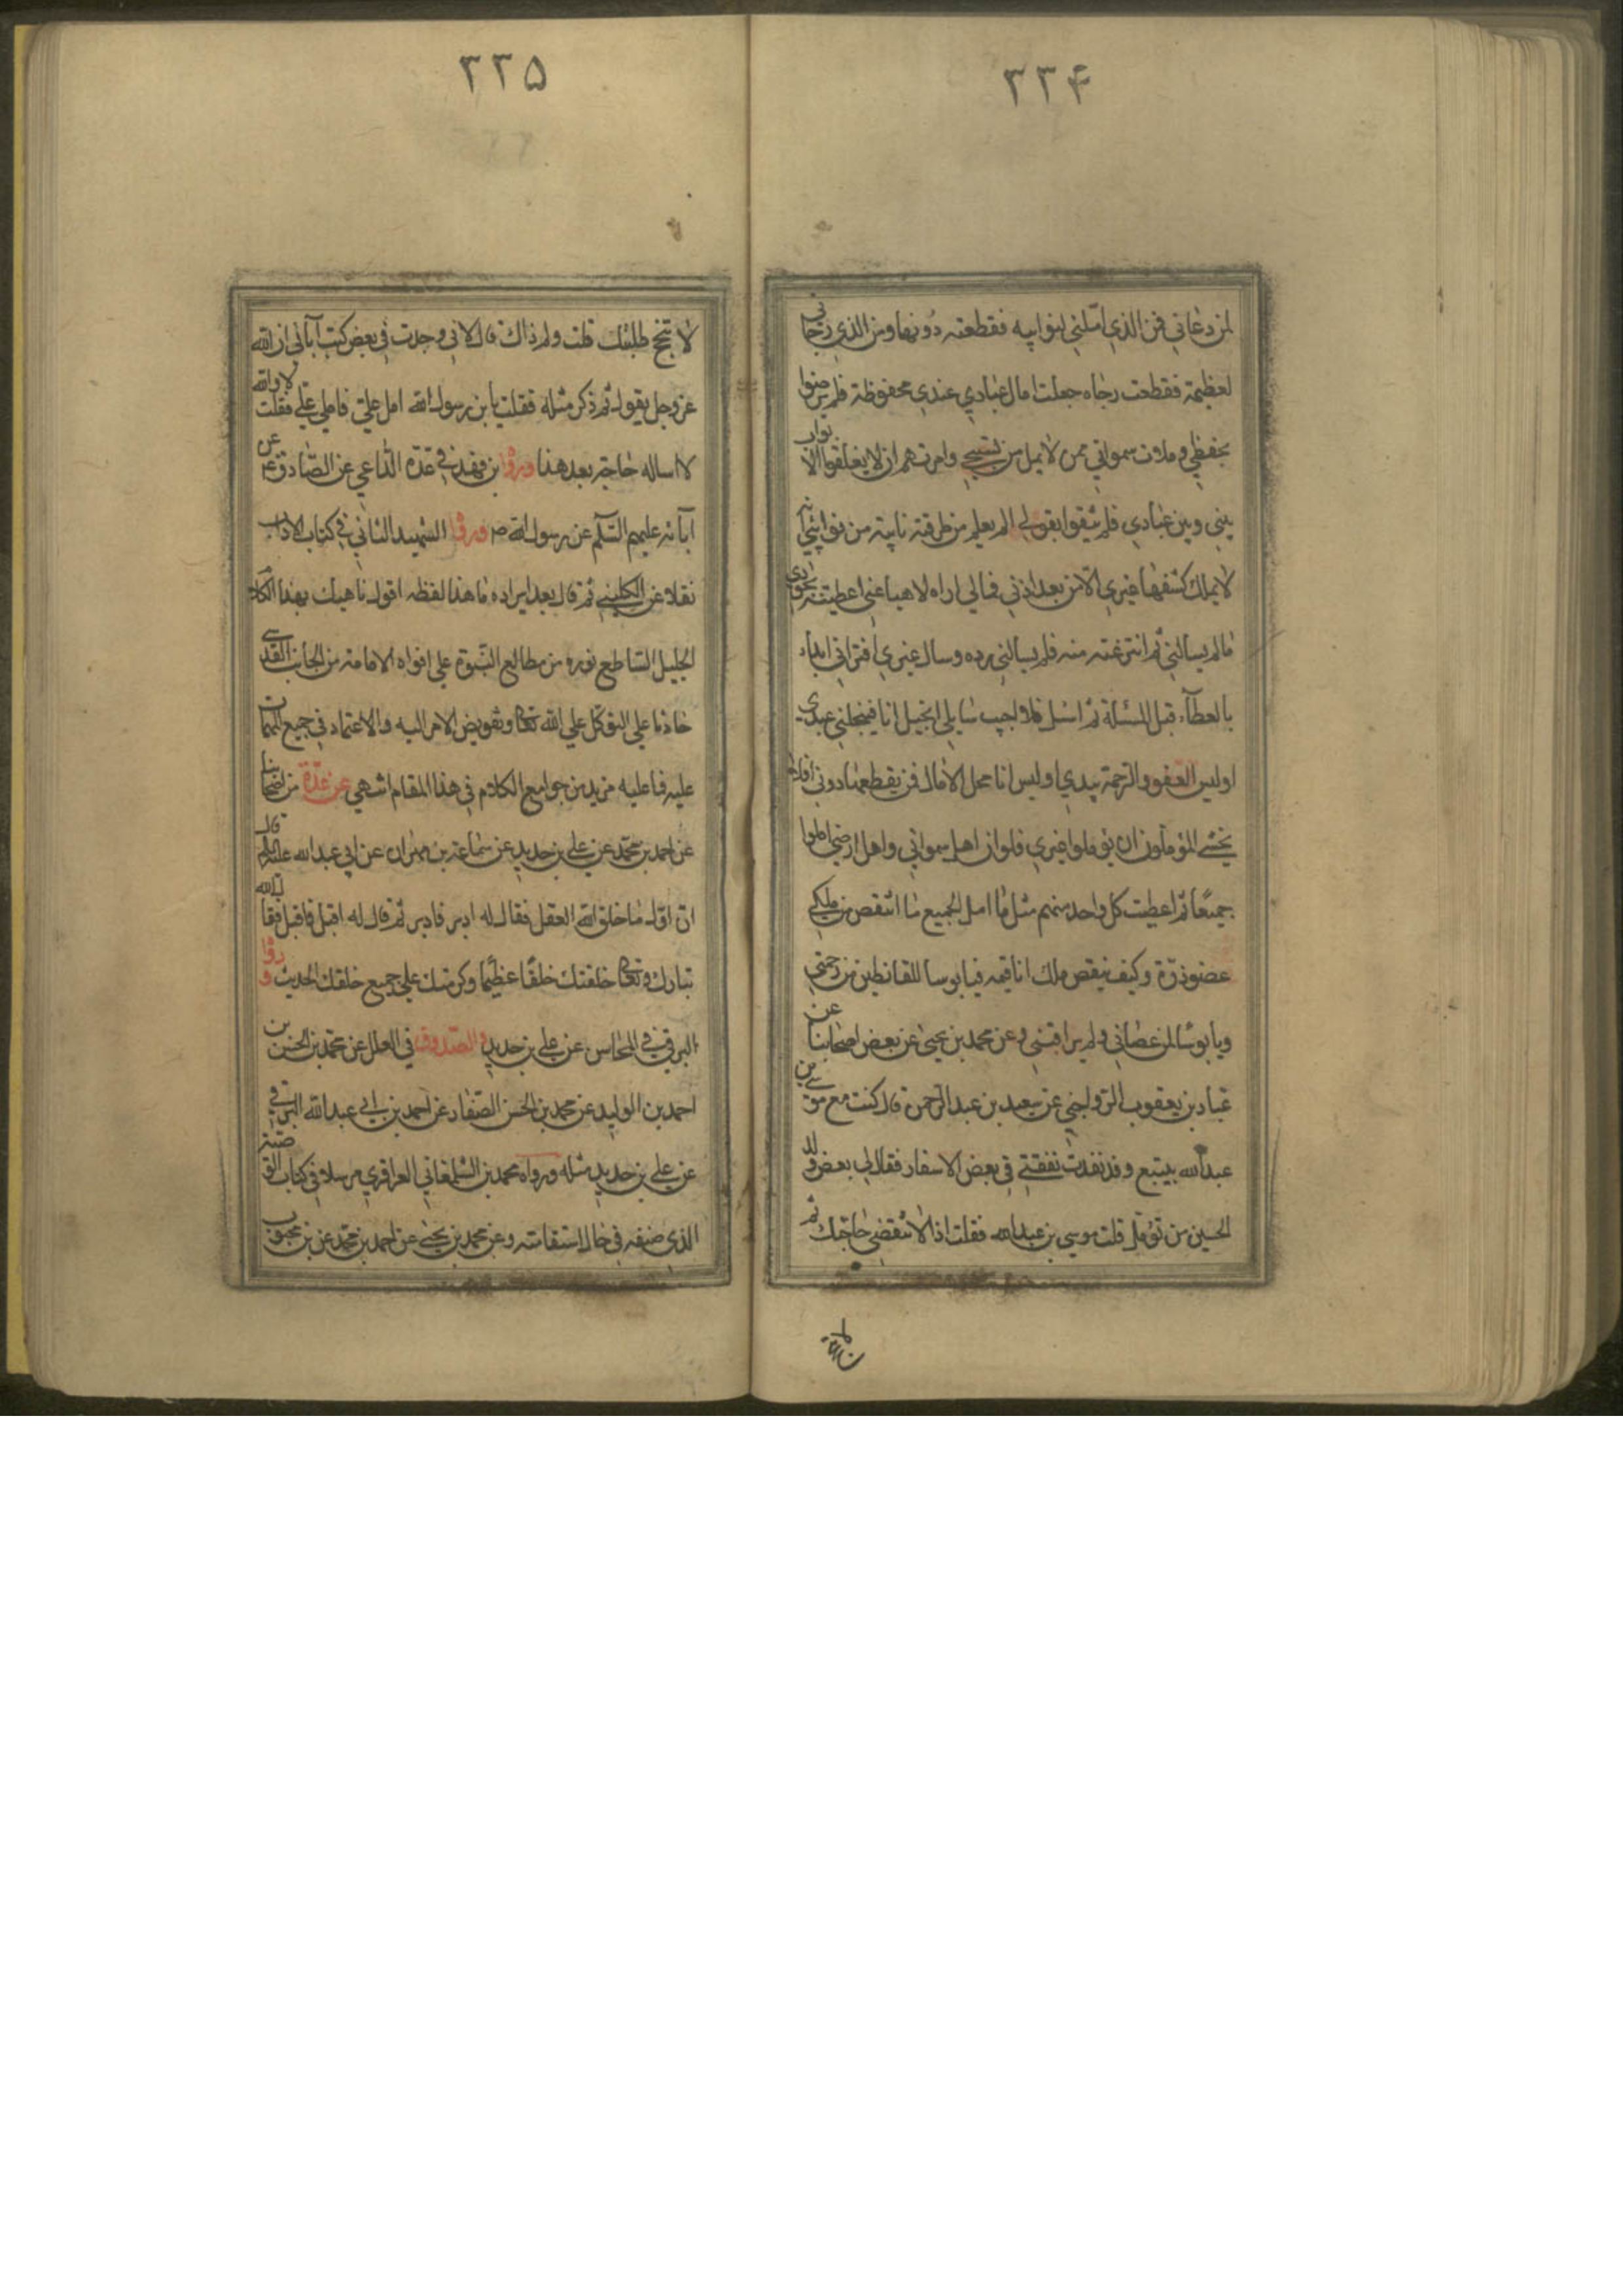 ٣٣۴
لمن دعاني فمن الذي املني لنوائبه فقطعته دونها ومن الذي رجاني
لعظيمة فقطعت رجاه جعلت امال عبادي عندي محفوظة فلم يرضوا
بحفظي وملات سمواتي ممن لا يمل من تسبيحي وامرتهم ان لا يغلقوا الابواب
بيني وبين عبادي فلم يثقوا بقولي الم يعلم من طرقته نايبة من نوائبي انه
لا يملك كشفها غيري الا من بعد اذني فمالي اراه لاهيا عني اعطيته بجودي
مالم يسالني ثم انتزعته منه فلم يسالني رده وسال غيري افتراني ابداء
بالعطآء قبل المسئلة ثم اسئل فلا اجيب سايلي ابخيل انا فيبخلني عبدي
اوليس العفو والرحمة بيدي اوليس انا محل الامال فمن يقطعها دوني افلا
يخشي المؤملون ان يؤملوا غيري فلو ان اهل سمواتي واهل ارضي املوا
جميعًا ثم اعطيت كل واحد منهم مثل ما امل الجميع ما انتقص من ملكي
عضو ذرة وكيف ينقص ملك انا قيمه فيا بوسا للقانطين من رحمتي
ويا بوسًا لمن عصاني ولم يراقبني وعن محمد بن يحيى عن بعض اصحابنا عن
عباد بن يعقوب الرواجني عن سعيد بن عبد الرحمن قال كنت مع موسي بن
عبد الله بينبع وقد نفدت نفقتي في بعض الاسفار فقال لي بعض ولد
الحسين من تؤمل قلت موسي بن عبد الله فقلت اذا لا تقضي حاجتك ثم
٣٣۵
لا تنجح طلبتك قلت ولم ذاك قال لاني وجدت في بعض كتب آبائي ان الله
عز وجل يقول ثم ذكر مثله فقلت يا بن رسول الله امل علي فاملي علي فقلت لا والله
لا اساله حاجة بعد هذا وروا بن فهد في عدة الداعي عن الصادق ع عن
آبائه عليهم السلم عن رسول الله ص وروا الشهيد الثاني في كتاب الاداب
نقلا عن الكليني ثم قال بعد ايراده ما هذا لفظه اقول ناهيك بهذا الكلام
الجليل الساطع نوره من مطالع النبوة علي افواه الامامة من الجانب القدسي
حاثا علي التوكل علي الله تعالى وتفويض الامر اليه والاعتماد في جميع المهمات
عليه فما عليه مزيد من جوامع الكلام في هذا المقام انتهي عن عدة من اصحابنا
عن احمد بن محمد عن علي بن حديد عن سماعة بن مهران عن ابي عبد الله عليه السلم قال
ان اول ما خلق الله العقل فقال له ادبر فادبر ثم قال له اقبل فاقبل فقال الله
تبارك وتعالى خلقتك خلقًا عظيمًا وكرمتك علي جميع خلقك الحديث وروا
البرقي في المحاسن عن علي بن حديد والصدوق في العلل عن محمد بن الحسن بن
احمد بن الوليد عن محمد بن الحسن الصفار عن احمد بن ابي عبد الله البرقي
عن علي بن حديد مثله ورواه محمد بن الشلمغاني العزاقري مرسلا في كتاب
الذي صنفه في حال استقامته وعن محمد بن يحيي عن احمد بن محمد عن بن محبوب